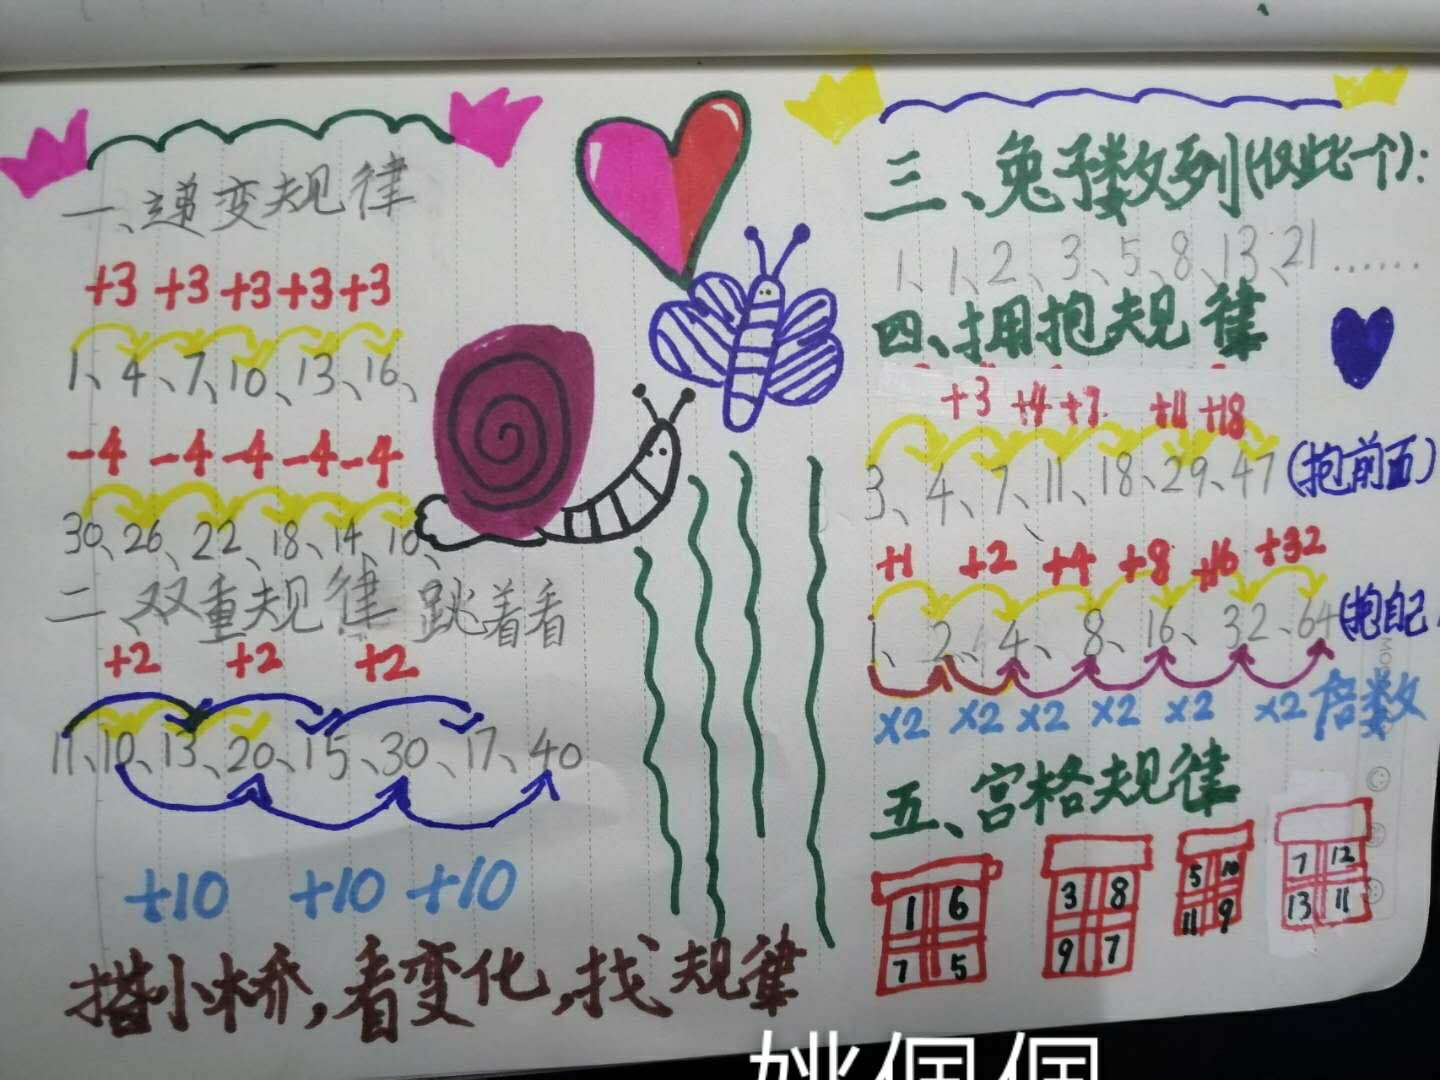 一、递变规律
+3 +3 +3 +3 +3
1、4、7、10、13、16、
-4 -4 -4 -4 -4
30、26、22、18、14、10、
二、双重规律 跳着看
+2 +2 +2
11、10、13、20、15、30、17、40
+10 +10 +10
搭小桥,看变化,找规律
三、兔子数列(仅此一个):
1、1、2、3、5、8、13、21……
四、拥抱规律
+3 +4 +7 +11 +18
3、4、7、11、18、29、47 (抱前面)
+1 +2 +4 +8 +16 +32
1、2、4、8、16、32、64 (抱自己
×2 ×2 ×2 ×2 ×2 ×2 倍数
五、宫格规律
1 6
7 5
3 8
9 7
5 10
11 9
7 12
13 11
姚佩佩